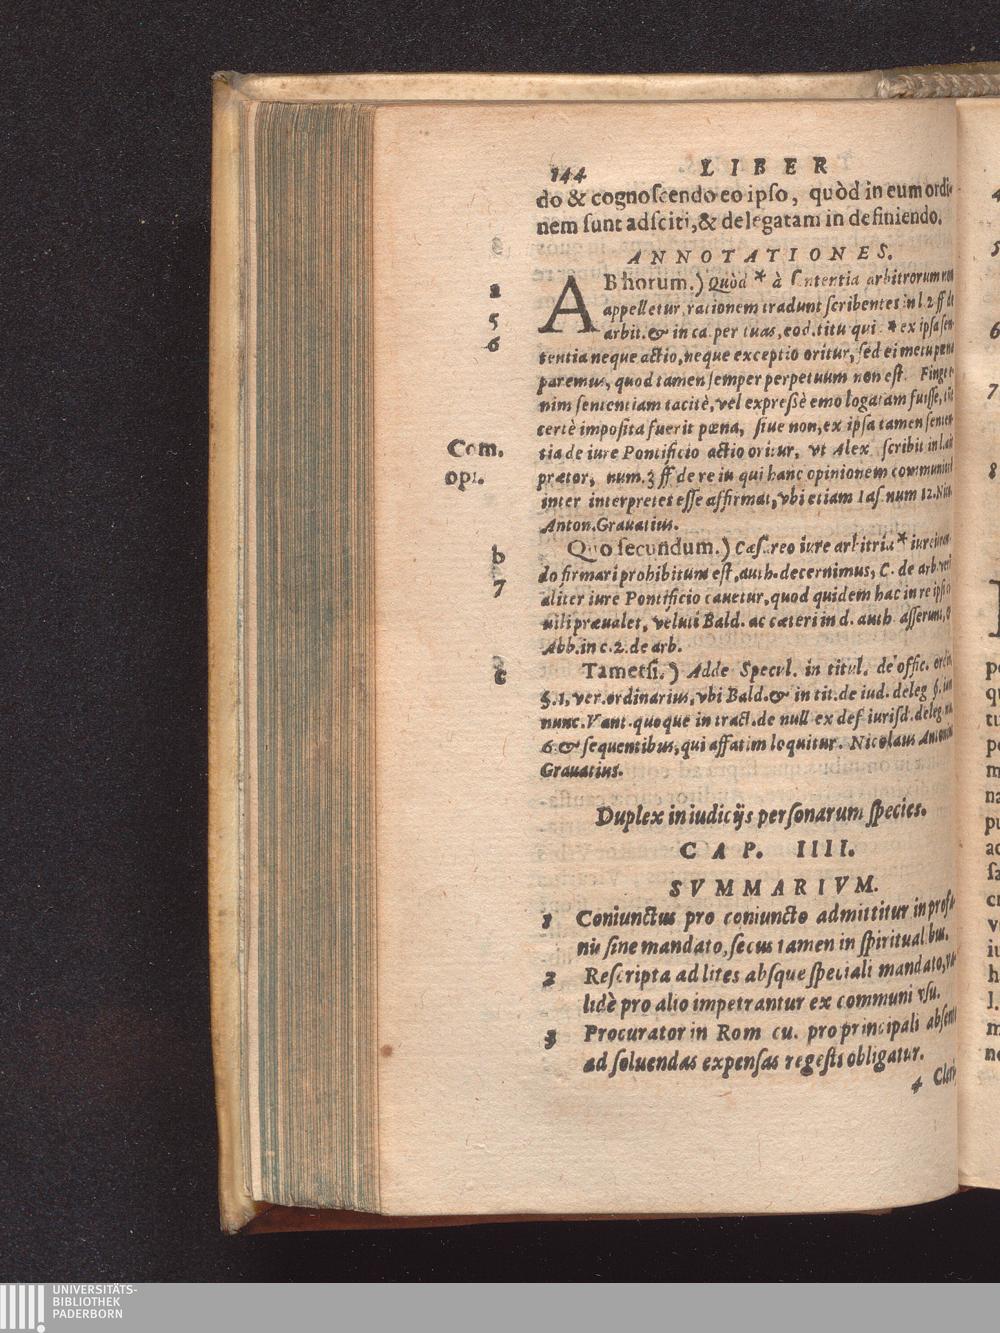 144 LIBER
do & cognoscendo eo ipso, quòd in eum ordi-
nem sunt adsciti, & delegatam in definiendo.
ANNOTATIONES.
a ABhorum.) Quòd * à sententia arbitrorum non
5 appelletur, rationem tradunt scribentes in l.2 ff de
6 arbit. & in ca. per tuas, eod. titu qui * ex ipsa sen-
tentia neque actio, neque exceptio oritur, sed ei metu pœnæ
paremus, quod tamen semper perpetuum non est. Finge e-
nim sententiam tacitè, vel expressè emologatam fuisse,
certè imposita fuerit pœna, siue non, ex ipsa tamen senten-
Com. tia de iure Pontificio actio oritur, vt Alex. scribit in l. ait
opi. prætor, num.3 ff de re iu qui hanc opinionem communem
inter interpretes esse affirmat, vbi etiam Ias. num 12. Nic.
Anton. Grauatius.
b Quo secundum.) Cæsareo iure arbitria * iureiuran-
7 do firmari prohibitum est, auth. decernimus, C. de arb. verùm
aliter iure Pontificio cauetur, quod quidem hac in re ipsi ci-
uili præualet, veluti Bald. ac cæteri in d. auth asserunt, &
Abb. in c. 2. de arb.
c Tametsi.) Adde Specul. in titul. de offic. ordin.
§.1, ver. ordinarius, vbi Bald. & in tit. de iud. deleg §.
nunc. Vant. quoque in tract. de null ex def iurisd. deleg. nu
6 & sequentibus, qui affatim loquitur. Nicolaus Antonius
Grauatius.
Duplex in iudicijs personarum species.
CAP. IIII.
SVMMARIVM.
1 Coniunctus pro coniuncto admittitur in profa-
nis sine mandato, secus tamen in spiritualibus.
2 Rescripta ad lites absque speciali mandato, va-
lidè pro alio impetrantur ex communi vsu.
3 Procurator in Rom cu. pro principali absente
ad soluendas expensas regestis obligatur.
4 Cleri
4
5
6
7
8
UNIVERSITÄTS-
BIBLIOTHEK
PADERBORN